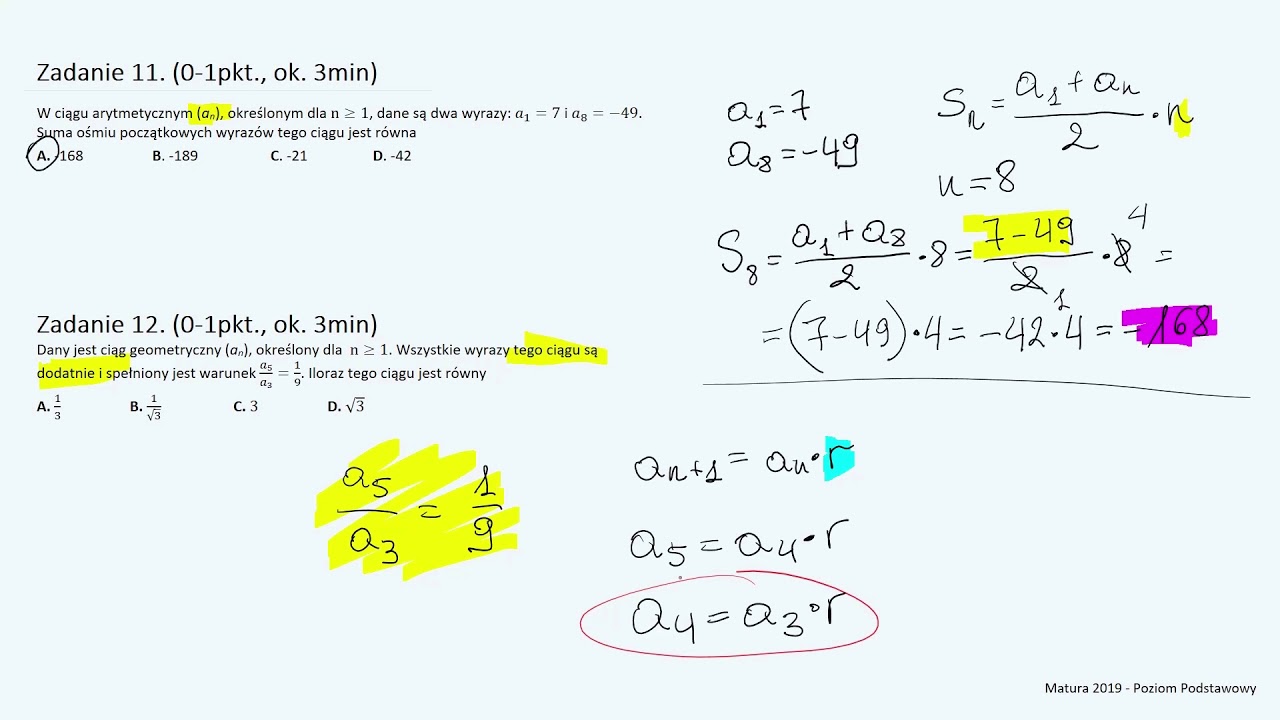 Zadanie 11. (0-1pkt., ok. 3min)
W ciągu arytmetycznym (aₙ), określonym dla n ≥ 1, dane są dwa wyrazy: a₁ = 7 i a₈ = −49.
Suma ośmiu początkowych wyrazów tego ciągu jest równa
A. -168 B. -189 C. -21 D. -42
a₁ = 7
a₈ = −49
Sₙ = (a₁ + aₙ)/2 · n
n = 8
S₈ = (a₁ + a₈)/2 · 8 = (7 − 49)/2 · 8 =
1
4
= (7 − 49) · 4 = −42 · 4 = −168
Zadanie 12. (0-1pkt., ok. 3min)
Dany jest ciąg geometryczny (aₙ), określony dla n ≥ 1. Wszystkie wyrazy tego ciągu są
dodatnie i spełniony jest warunek a₅/a₃ = 1/9. Iloraz tego ciągu jest równy
A. 1/3 B. 1/√3 C. 3 D. √3
a₅/a₃ = 1/9
aₙ₊₁ = aₙ · r
a₅ = a₄ · r
a₄ = a₃ · r
Matura 2019 - Poziom Podstawowy